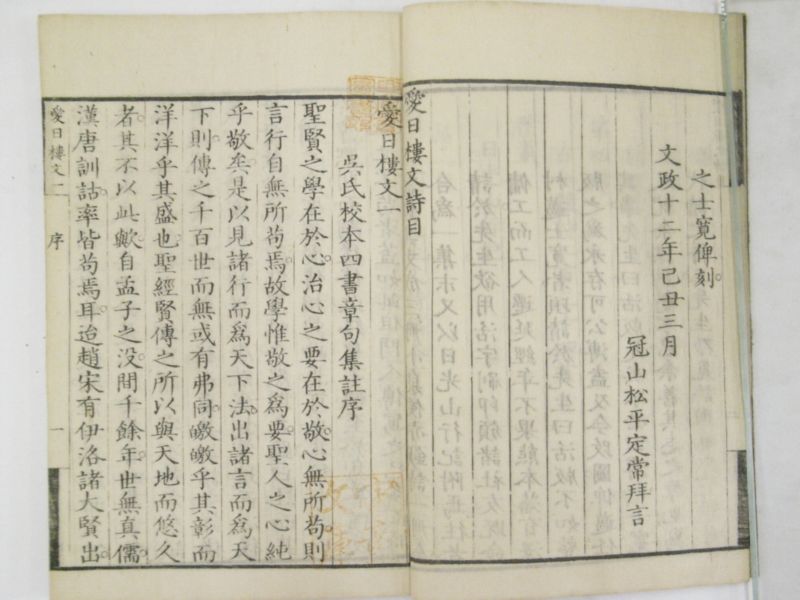 之士寬俾刻
文政十二年己丑三月
冠山松平定常拜言
愛日樓文詩目
愛日樓文一
吳氏校本四書章句集註序
聖賢之學在於心治心之要在於敬心無所苟則
言行自無所苟焉故學惟敬之爲要聖人之心純
乎敬矣是以見諸行而爲天下法出諸言而爲天
下則傳之千百世而無或有弗同皦皦乎其彰而
洋洋乎其盛也聖經賢傳之所以與天地而悠久
者其不以此歟自孟子之没間千餘年世無真儒
漢唐訓詁率皆苟焉耳迨趙宋有伊洛諸大賢出
愛日樓文二 序 一